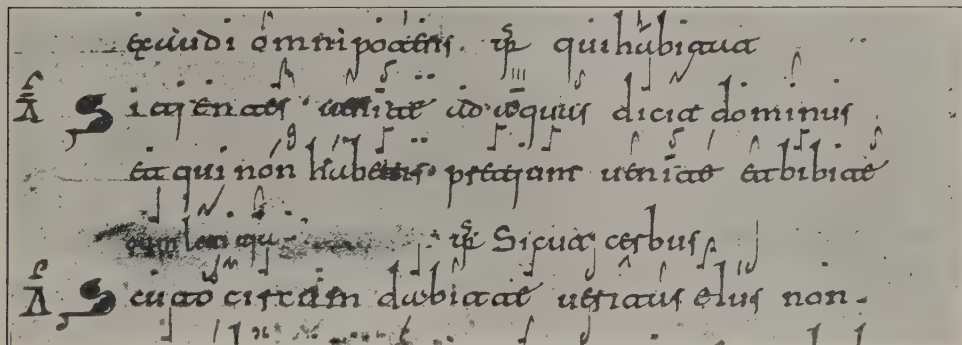 exaudi omnipotens. ps̄ qui habitat
A S itientes venite ad aquas dicit dominus
et qui non habetis pretium venite et bibite
ps̄ Sicut cerbus
A S cuto circum dabit te veritas eius non.